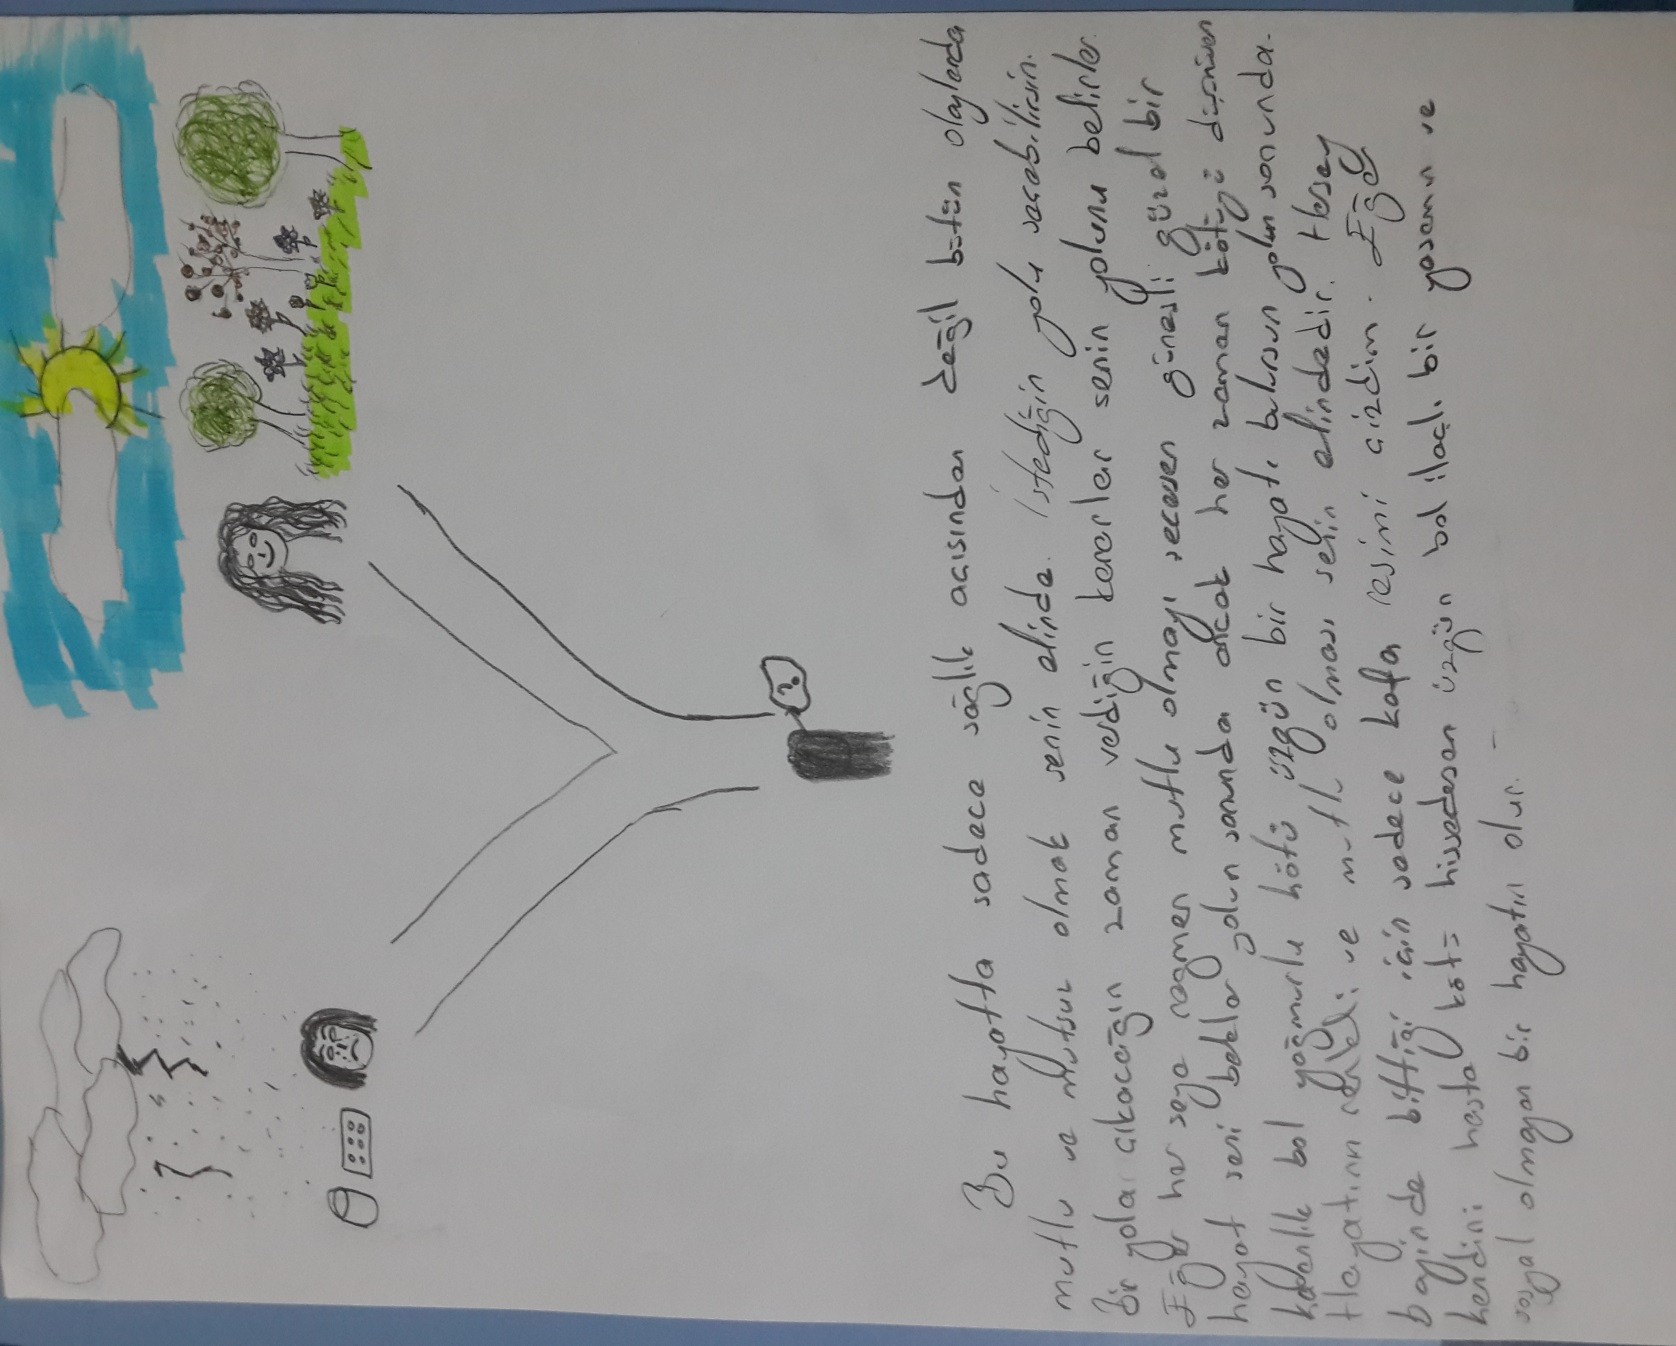 ?
Bu hayatta sadece sağlık acısından değil bütün olaylarda
mutlu ve mutsuz olmak senin elinde. İstediğin yolu secebilirsin.
Bir yola cıkacağın zaman verdiğin kararlar senin yolunu belirler.
Eğer her şeye rağmen mutlu olmayı secersen güneşli güzel bir
hayat seni bekler yolun sonunda ancak her zaman kötüyü düşünürsen
karanlık bol yağmurlu kötü üzgün bir hayatı bulursun yolun sonunda.
Hayatının renkli ve mutlu olması senin elindedir. Herşey
beyinde bittiği icin sadece kafa resimi cizdim. Eğer
kendini hasta kötü hissedersen üzgün bol ilaçlı bir yaşamın ve
sosyal olmayan bir hayatın olur.